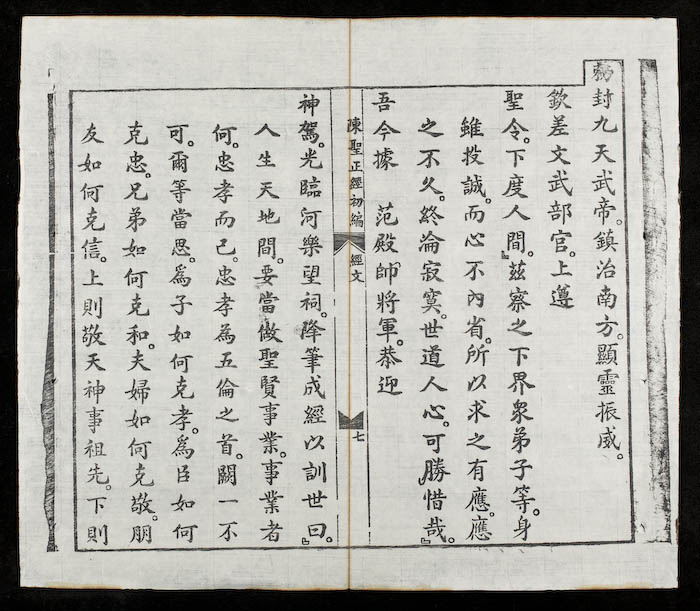 勅封九天武帝。鎮治南方。顯靈振威。
欽差文武部官。上遵
聖令。下度人間。』茲察之下界衆弟子等。身
雖投誠。而心不內省。所以求之有應。應
之不久。終淪寂寞。世道人心。可勝惜哉。』
吾今據 范殿帥將軍。恭迎
陳聖正經初編 經文 七
神駕。光臨河樂望祠。降筆成經以訓世曰。』
人生天地間。要當做聖賢事業。事業者
何。忠孝而已。忠孝為五倫之首。闕一不
可。爾等當思。為子如何克孝。為臣如何
克忠。兄弟如何克和。夫婦如何克敬。朋
友如何克信。上則敬天神事祖先。下則